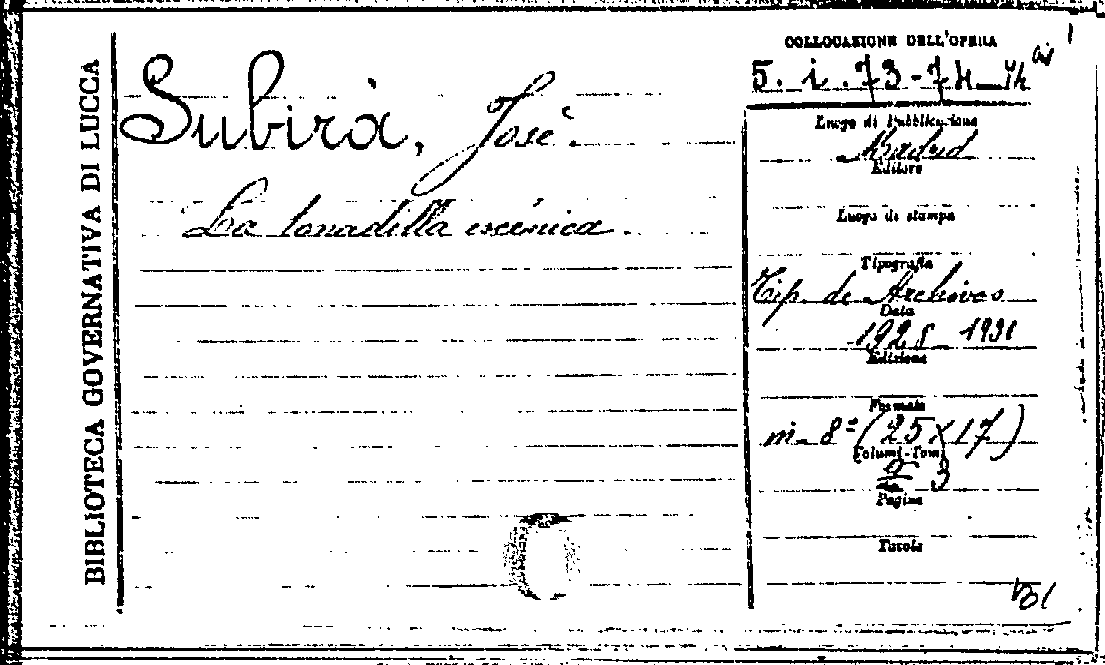 BIBLIOTECA GOVERNATIVA DI LUCCA
Subirá, José.
La tonadilla escénica.
COLLOCAZIONE DELL'OPERA
5. i. 73-74-74 bis
Luogo di Pubblicazione
Madrid
Editore
Luogo di stampa
Tipografia
Tip. de Archivos
Data
1928-1930
Edizione
Formato
in-8° (25x17)
Volumi-Tomi
3
Pagine
Tavole